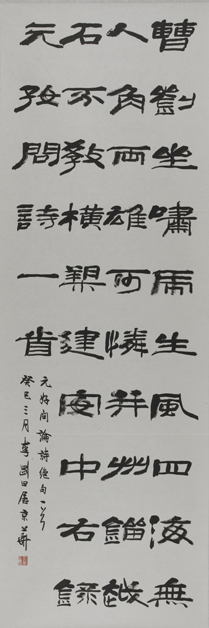 曹劉坐嘯虎生風四海無
人角兩雄可憐并州鎦越
石不教橫槊建安中右錄
元好問詩一首
元好問論詩絕句一首
癸巳三月李剛田居京華